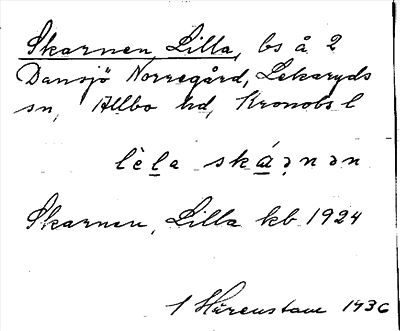 Skarnen, Lilla, bs å 2
Dansjö Norregård, Lekaryds
sn, Allbo hd, Kronobs l
lèla skáṇən
Skarnen, Lilla kb 1924
1 Hårenstam 1936